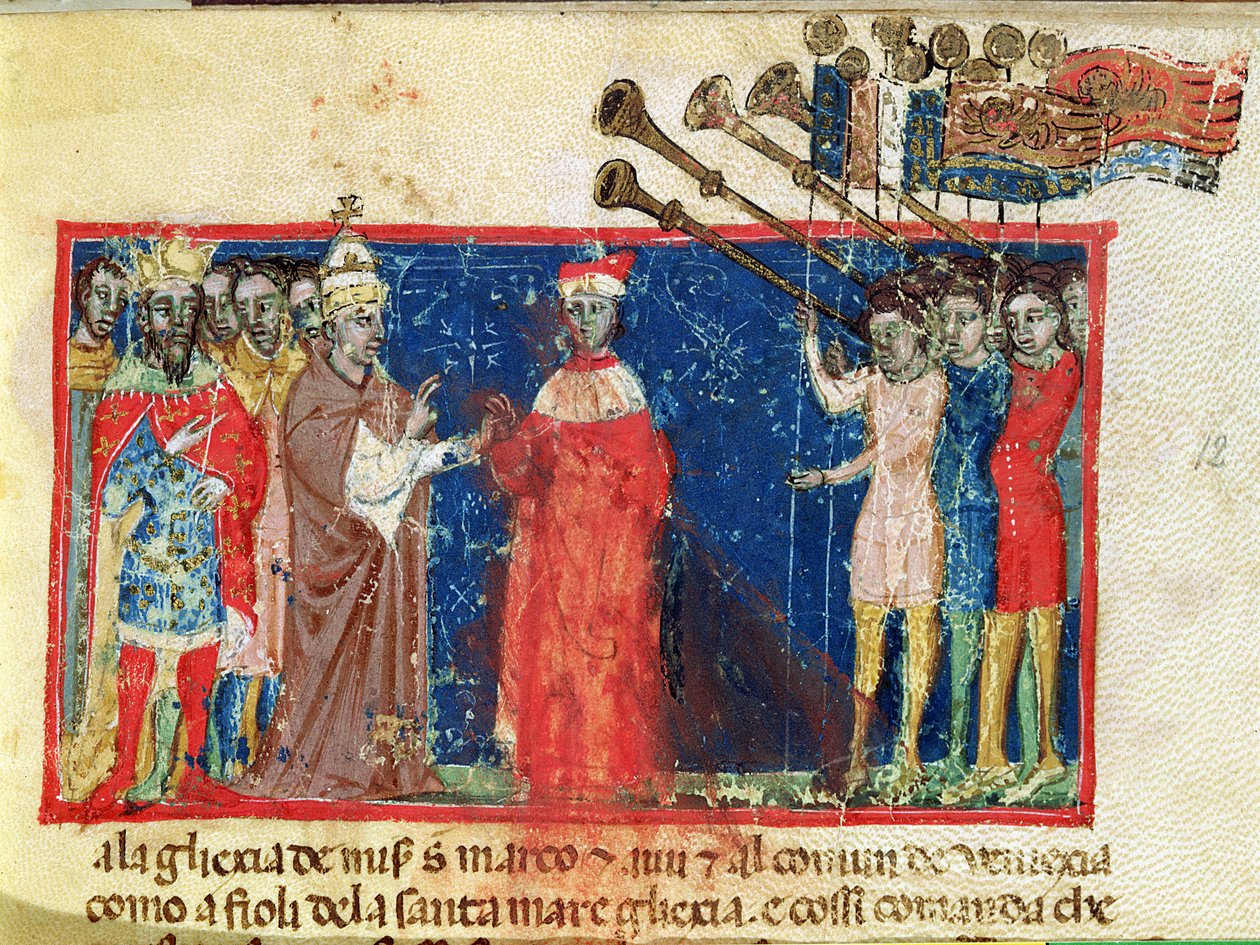 12
a la gliexia de miſ S marco ⁊ a lui ⁊ al comun de veniexia
como a fioli de la ſanta mare gliexia. e coſſi comanda che